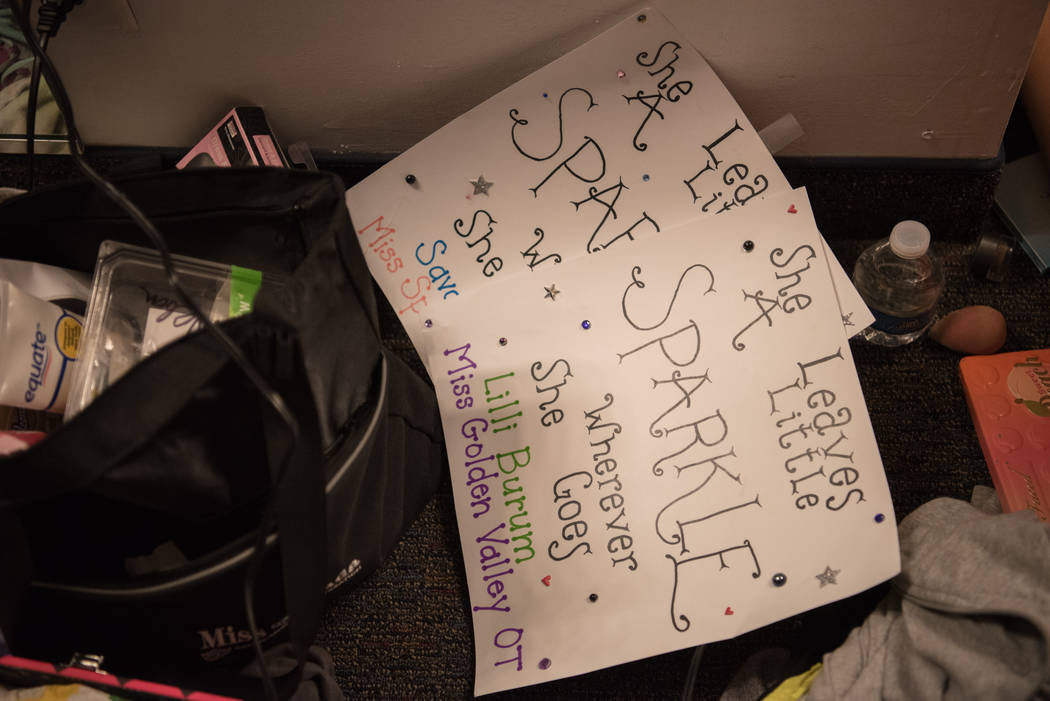 She
Leaves
A
Little
SPARKLE
Wherever
She
Goes
Lilli Burum
Miss Golden Valley OT
She
A
SPAR
She
Miss St
equate
Miss